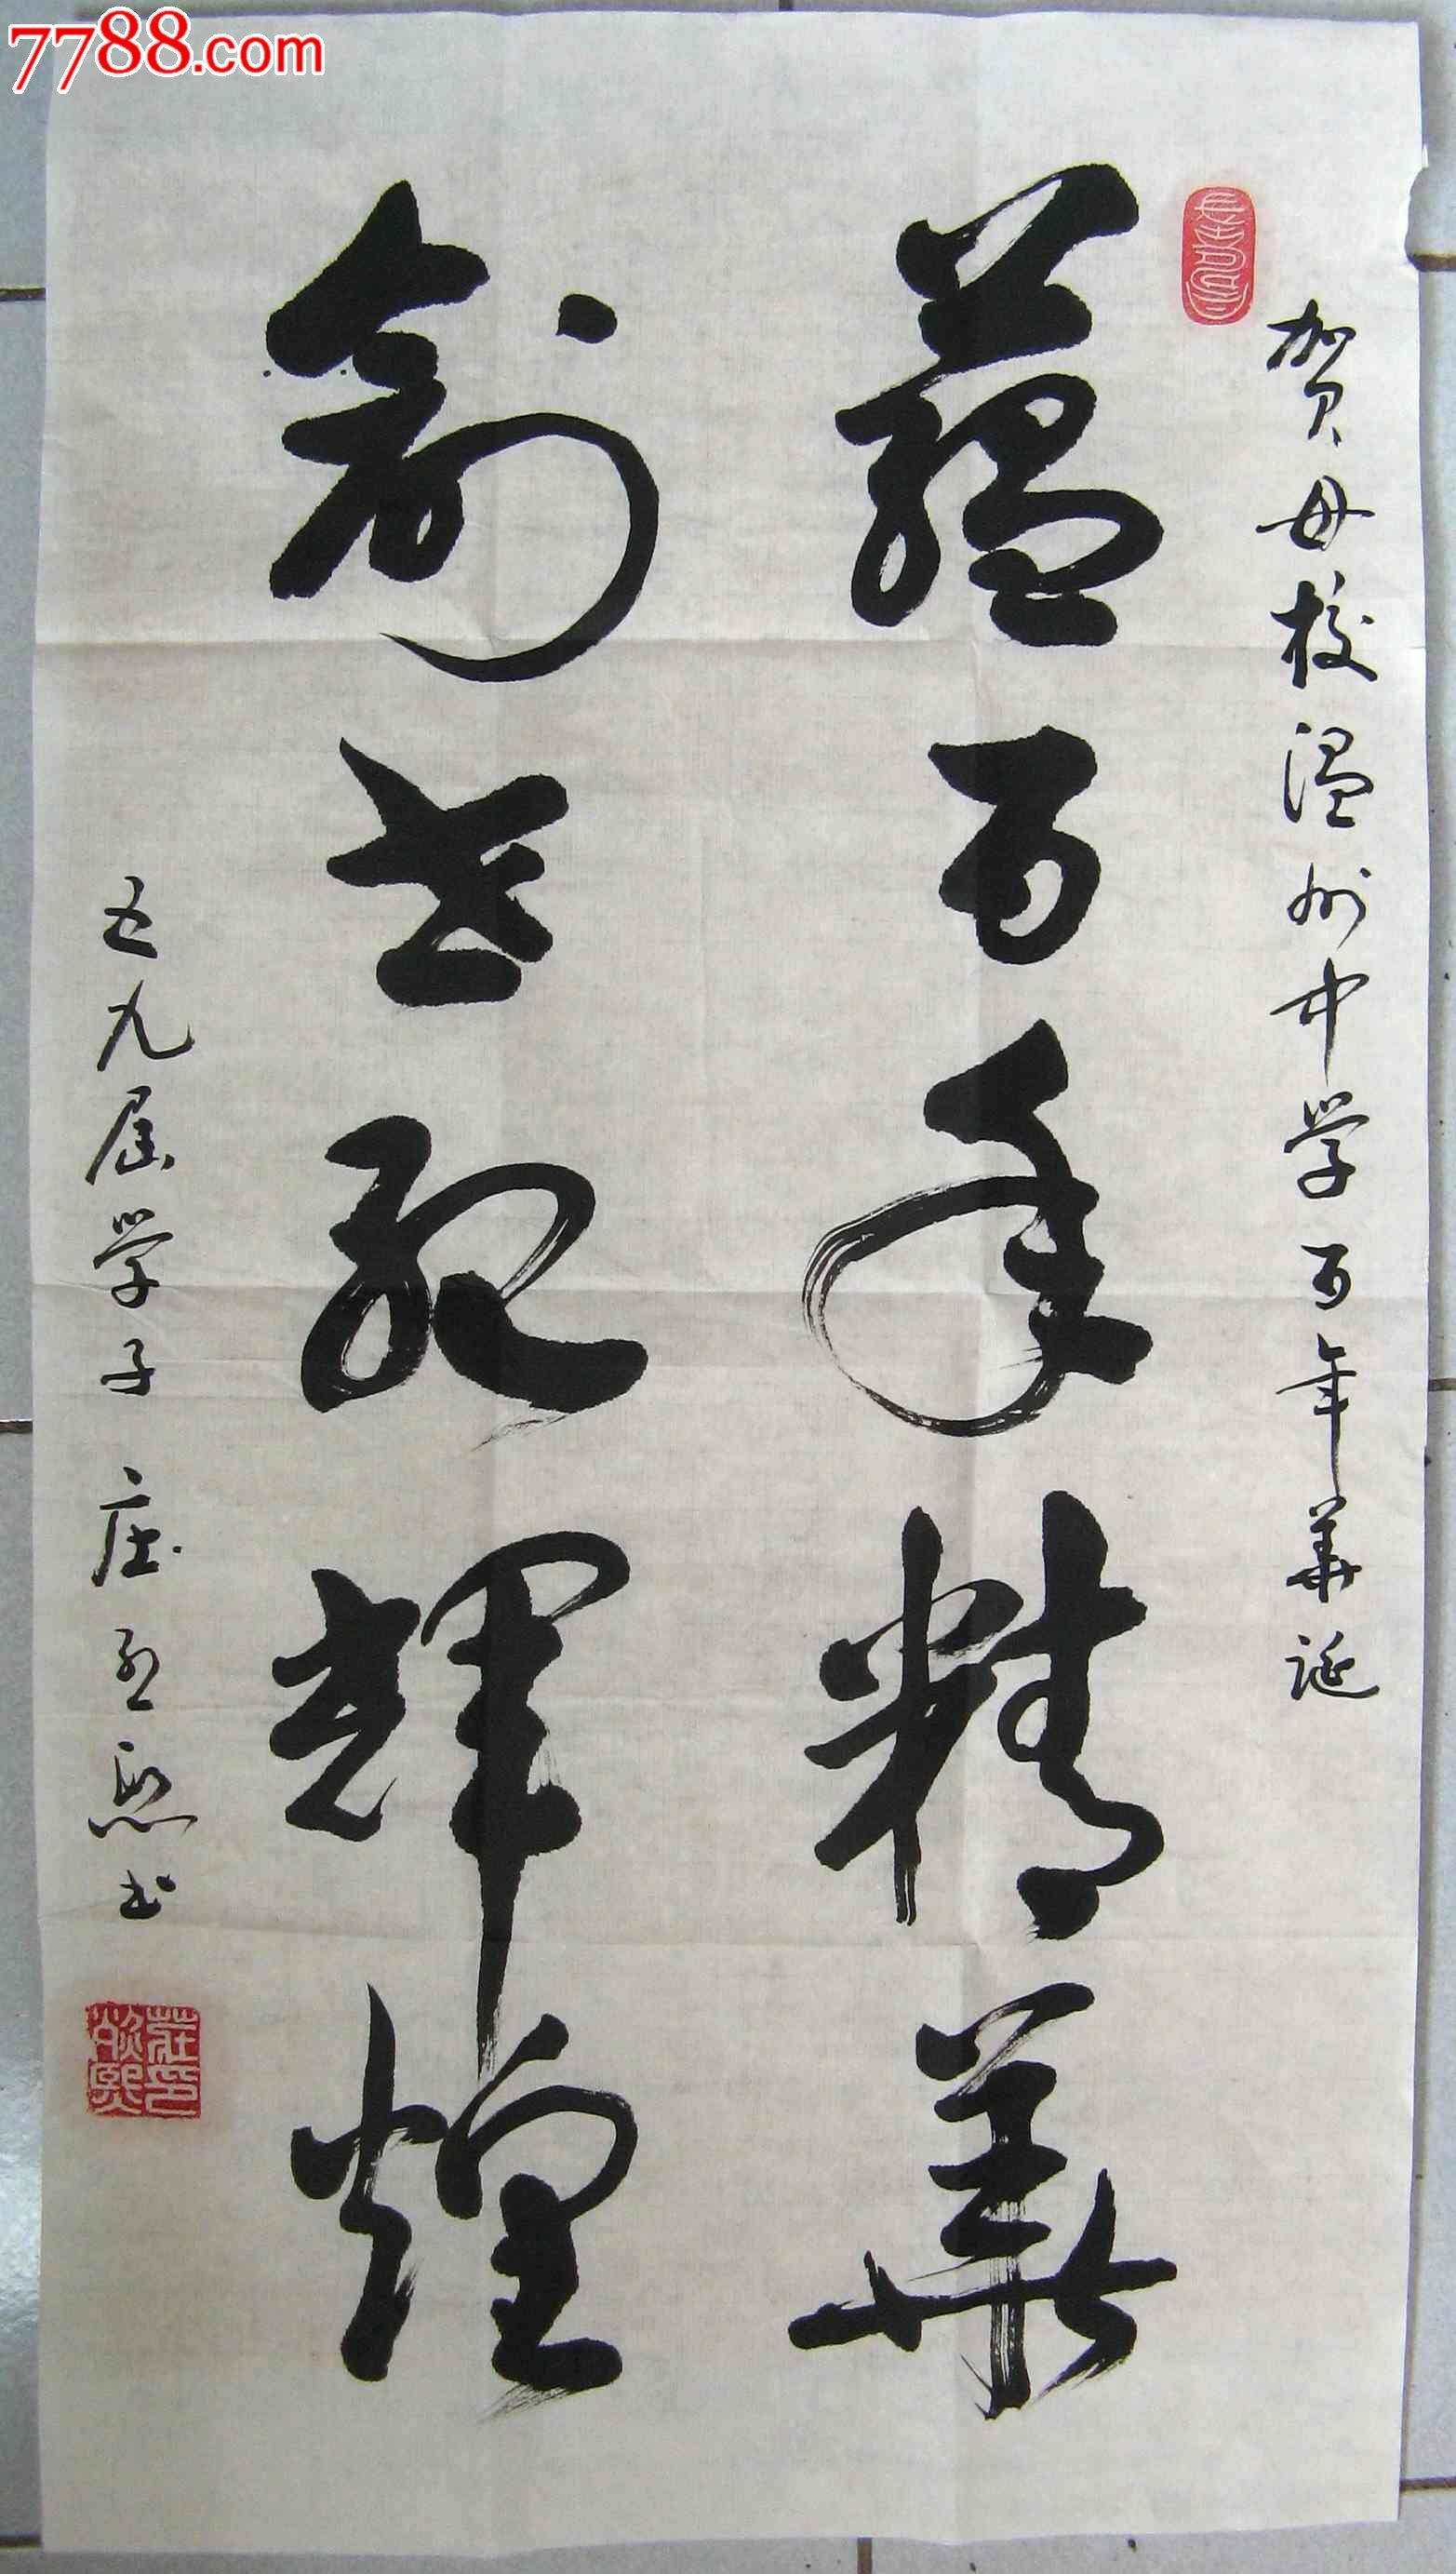 7788.com
贺母校温州中学百年華诞
蘊百年精華
創世紀輝煌
五九届学子 庄 熙书